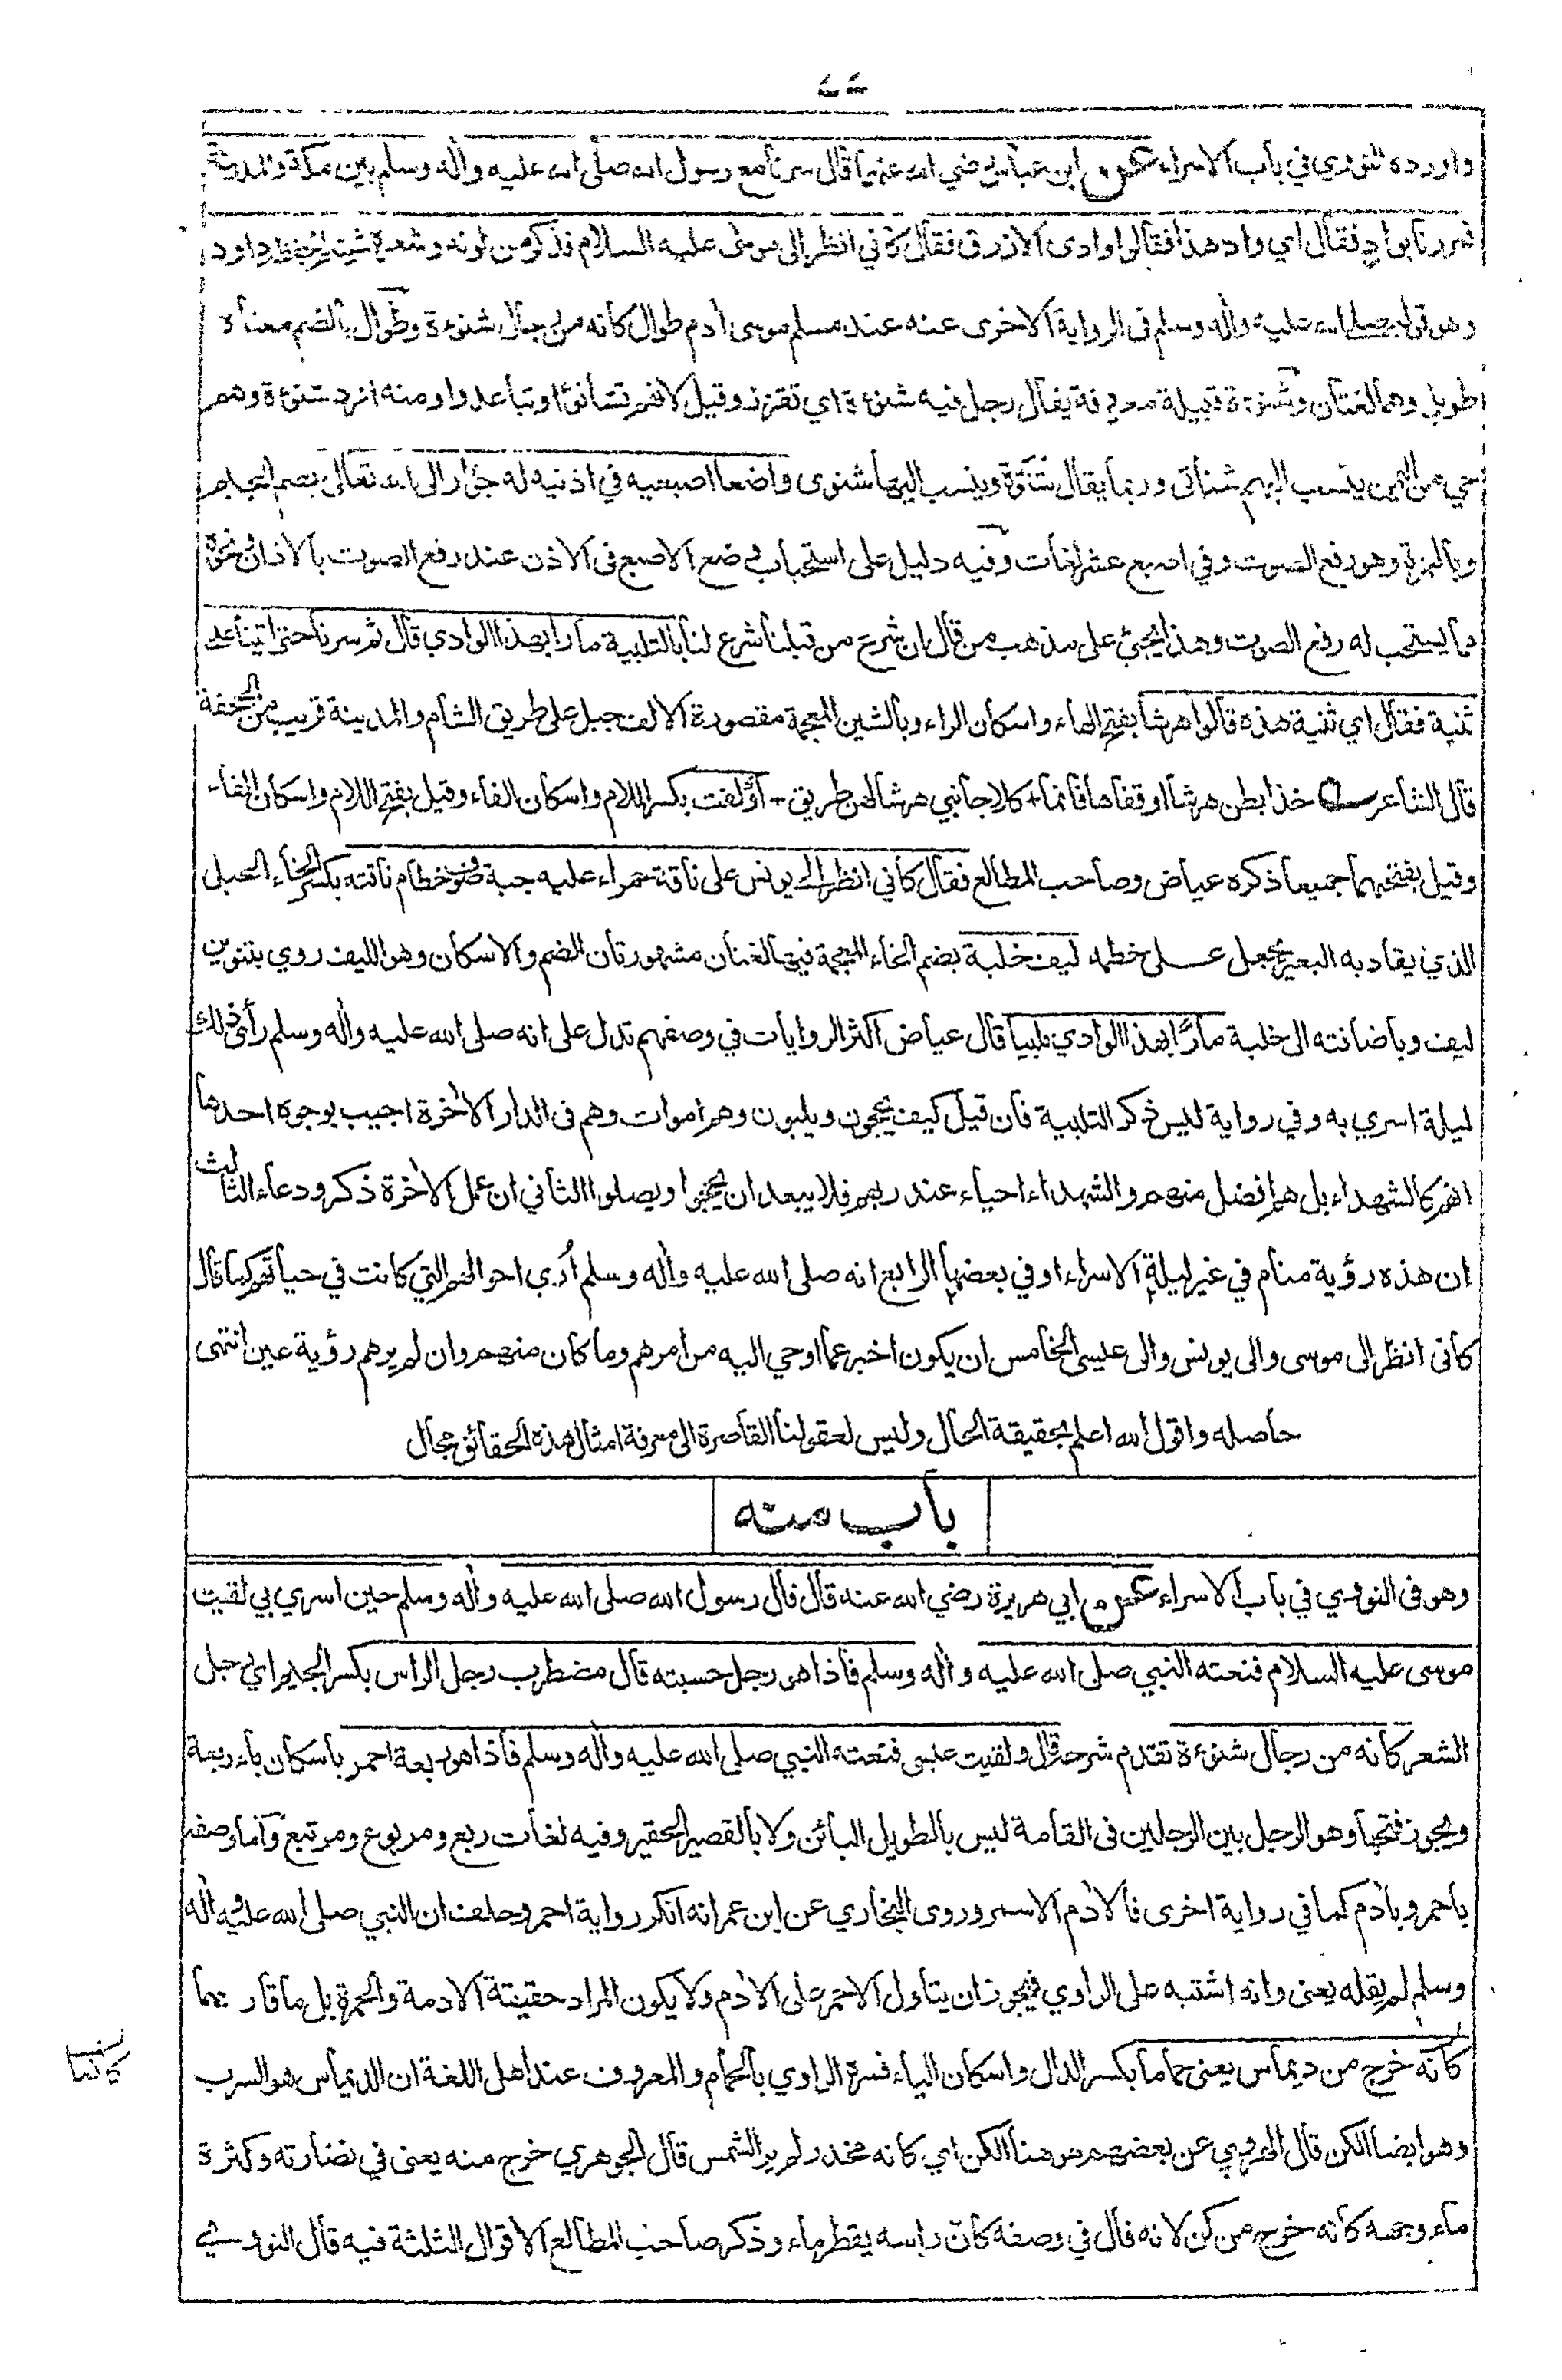 واورده النووي في باب الاسراء عن ابن عباس رضي الله عنهما قال سرنا مع رسول الله صلى الله عليه واله وسلم بين مكة والمدينة
فمررنا بواد فقال اي واد هذا فقالوا وادى الازرق فقال كاني انظر الى موسى عليه السلام فذكر من لونه وشعره شيئا لم يحفظه داود
وهو قوله صلى الله عليه واله وسلم فى الرواية الاخرى عنه عند مسلم موسى ادم طوال كانه من رجال شنوءة وطوال بالضم معناه
طويل وهما لغتان وشنوءة قبيلة معروفة يقال رجل فيه شنوءة اي تقزز وقيل لانهم تشانئوا وتباعدوا ومنه ازد شنوءة وهم
حي من اليمن ينسب اليهم شنائى وربما يقال شنوة وينسب اليها شنوى واضعا اصبعيه في اذنيه له جؤار الى الله تعالى بضم الجيم
وبالهمزة وهو رفع الصوت وفي اصبع عشر لغات وفيه دليل على استحباب وضع الاصبع فى الاذن عند رفع الصوت بالاذان ونحوه
مما يستحب له رفع الصوت وهذا يجيئ على مذهب من قال ان شرع من قبلنا شرع لنا بالتلبية مارا بهذا الوادي قال ثم سرنا حتى اتينا على
ثنية فقال اي ثنية هذه قالوا هرشا بفتح الهاء واسكان الراء وبالشين المعجمة مقصورة الالف جبل على طريق الشام والمدينة قريب من الجحفة
قال الشاعر خذا بطن هرشا او قفاها فانما + كلا جانبي هرشا لهن طريق + او لفت بكسر اللام واسكان الفاء وقيل بفتح اللام واسكان الفاء
وقيل بفتحهما جميعا ذكره عياض وصاحب المطالع فقال كاني انظر الى يونس على ناقة حمراء عليه جبة صوف خطام ناقته بكسر الخاء الحبل
الذي يقاد به البعير يجعل على خطمه ليف خلبة بضم الخاء المعجمة فيها لغتان مشهورتان الضم والاسكان وهو الليف روي بتنوين
ليف وباضافته الى خلبة مارًا بهذا الوادي ملبيا قال عياض اكثر الروايات في وصفهم تدل على انه صلى الله عليه واله وسلم رأى ذلك
ليلة اسري به وفي رواية ليس ذكر التلبية فان قيل كيف يحجون ويلبون وهم اموات وهم فى الدار الاخرة اجيب بوجوه احدها
انهم كالشهداء بل هم افضل منهم والشهداء احياء عند ربهم فلا يبعد ان يحجوا ويصلوا الثاني ان عمل الاخرة ذكر ودعاء الثالث
ان هذه رؤية منام في غير ليلة الاسراء او في بعضها الرابع انه صلى الله عليه واله وسلم أري احوالهم التي كانت في حياتهم كما قال
كانى انظر الى موسى والى يونس والى عيسى الخامس ان يكون اخبر عما اوحي اليه من امرهم وما كان منهم وان لم يرهم رؤية عين انتهى
حاصله واقول الله اعلم بحقيقة الحال وليس لعقولنا القاصرة الى معرفة امثال هذه الحقائق مجال
باب منه
وهو فى النووي في باب الاسراء عن ابي هريرة رضي الله عنه قال قال رسول الله صلى الله عليه واله وسلم حين اسري بي لقيت
موسى عليه السلام فنعته النبي صلى الله عليه واله وسلم فاذا هو رجل حسبته قال مضطرب رجل الراس بكسر الجيم اي رجل
الشعر كانه من رجال شنوءة تقدم شرحه قال ولقيت عيسى فنعته النبي صلى الله عليه واله وسلم فاذا هو ربعة احمر باسكان باء ربعة
ويجوز فتحها وهو الرجل بين الرجلين فى القامة ليس بالطويل البائن ولا بالقصير الحقير وفيه لغات ربع ومربوع ومرتبع واما وصفه
باحمر وبادم كما في رواية اخرى فالادم الاسمر وروى البخاري عن ابن عمر انه انكر رواية احمر وحلف ان النبي صلى الله عليه واله
وسلم لم يقله يعنى وانه اشتبه على الراوي فيجوز ان يتاول الاحمر على الادم ولا يكون المراد حقيقة الادمة والحمرة بل ما قاربهما
كانه خرج من ديماس يعنى حماما بكسر الدال واسكان الياء فسره الراوي بالحمام والمعروف عند اهل اللغة ان الديماس هو السرب
وهو ايضا الكن قال الهروي عن بعضهم هو هنا الكن اي كانه مخدر لم ير الشمس قال الجوهري خرج منه يعنى في نضارته وكثرة
ماء وجهه كانه خرج من كن لانه قال في وصفه كان راسه يقطر ماء وذكر صاحب المطالع الاقوال الثلثة فيه قال النووي